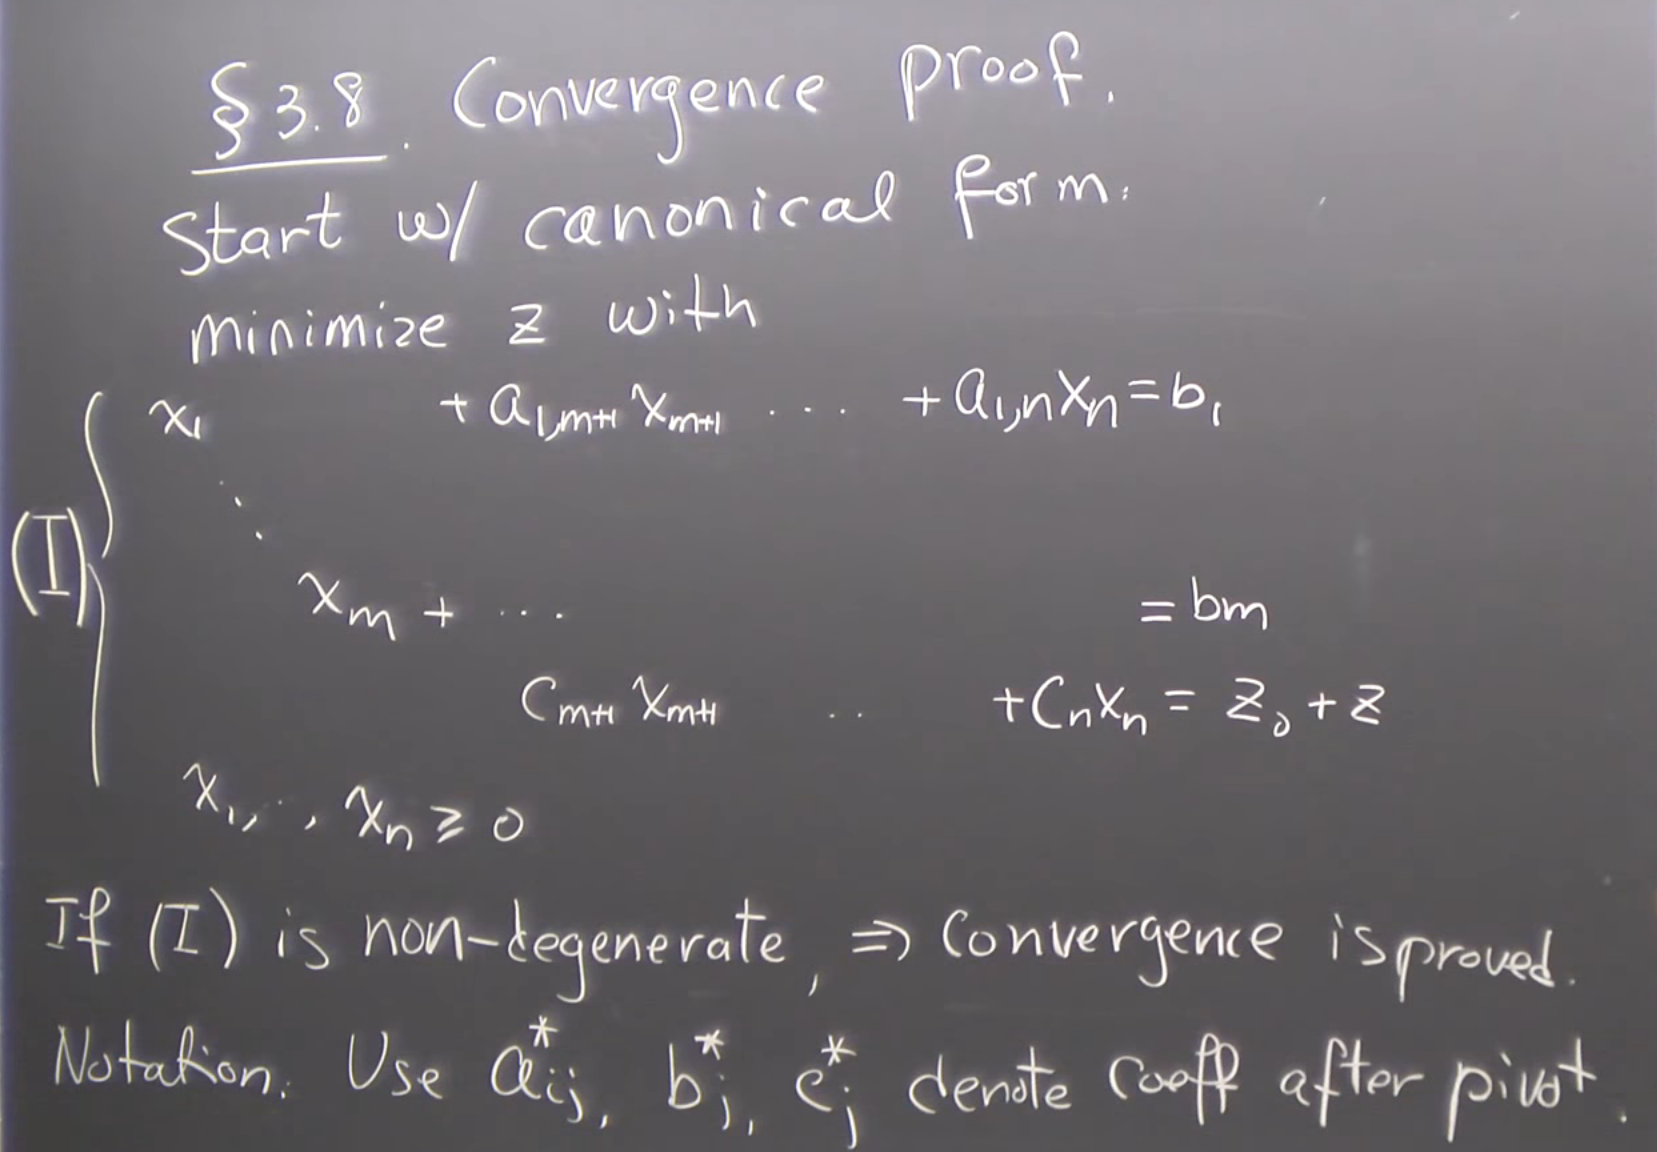 §3.8. Convergence proof.
Start w/ canonical form:
minimize z with
x₁ + a₁,ₘ₊₁ xₘ₊₁ ... + a₁,ₙxₙ = b₁
⋱
(I)
xₘ + ... = bₘ
cₘ₊₁ xₘ₊₁ .. + cₙxₙ = z₀ + z
x₁, .., xₙ ≥ 0
If (I) is non-degenerate, ⇒ Convergence is proved.
Notation: Use a*ᵢⱼ, b*ⱼ, c*ⱼ denote coeff after pivot.